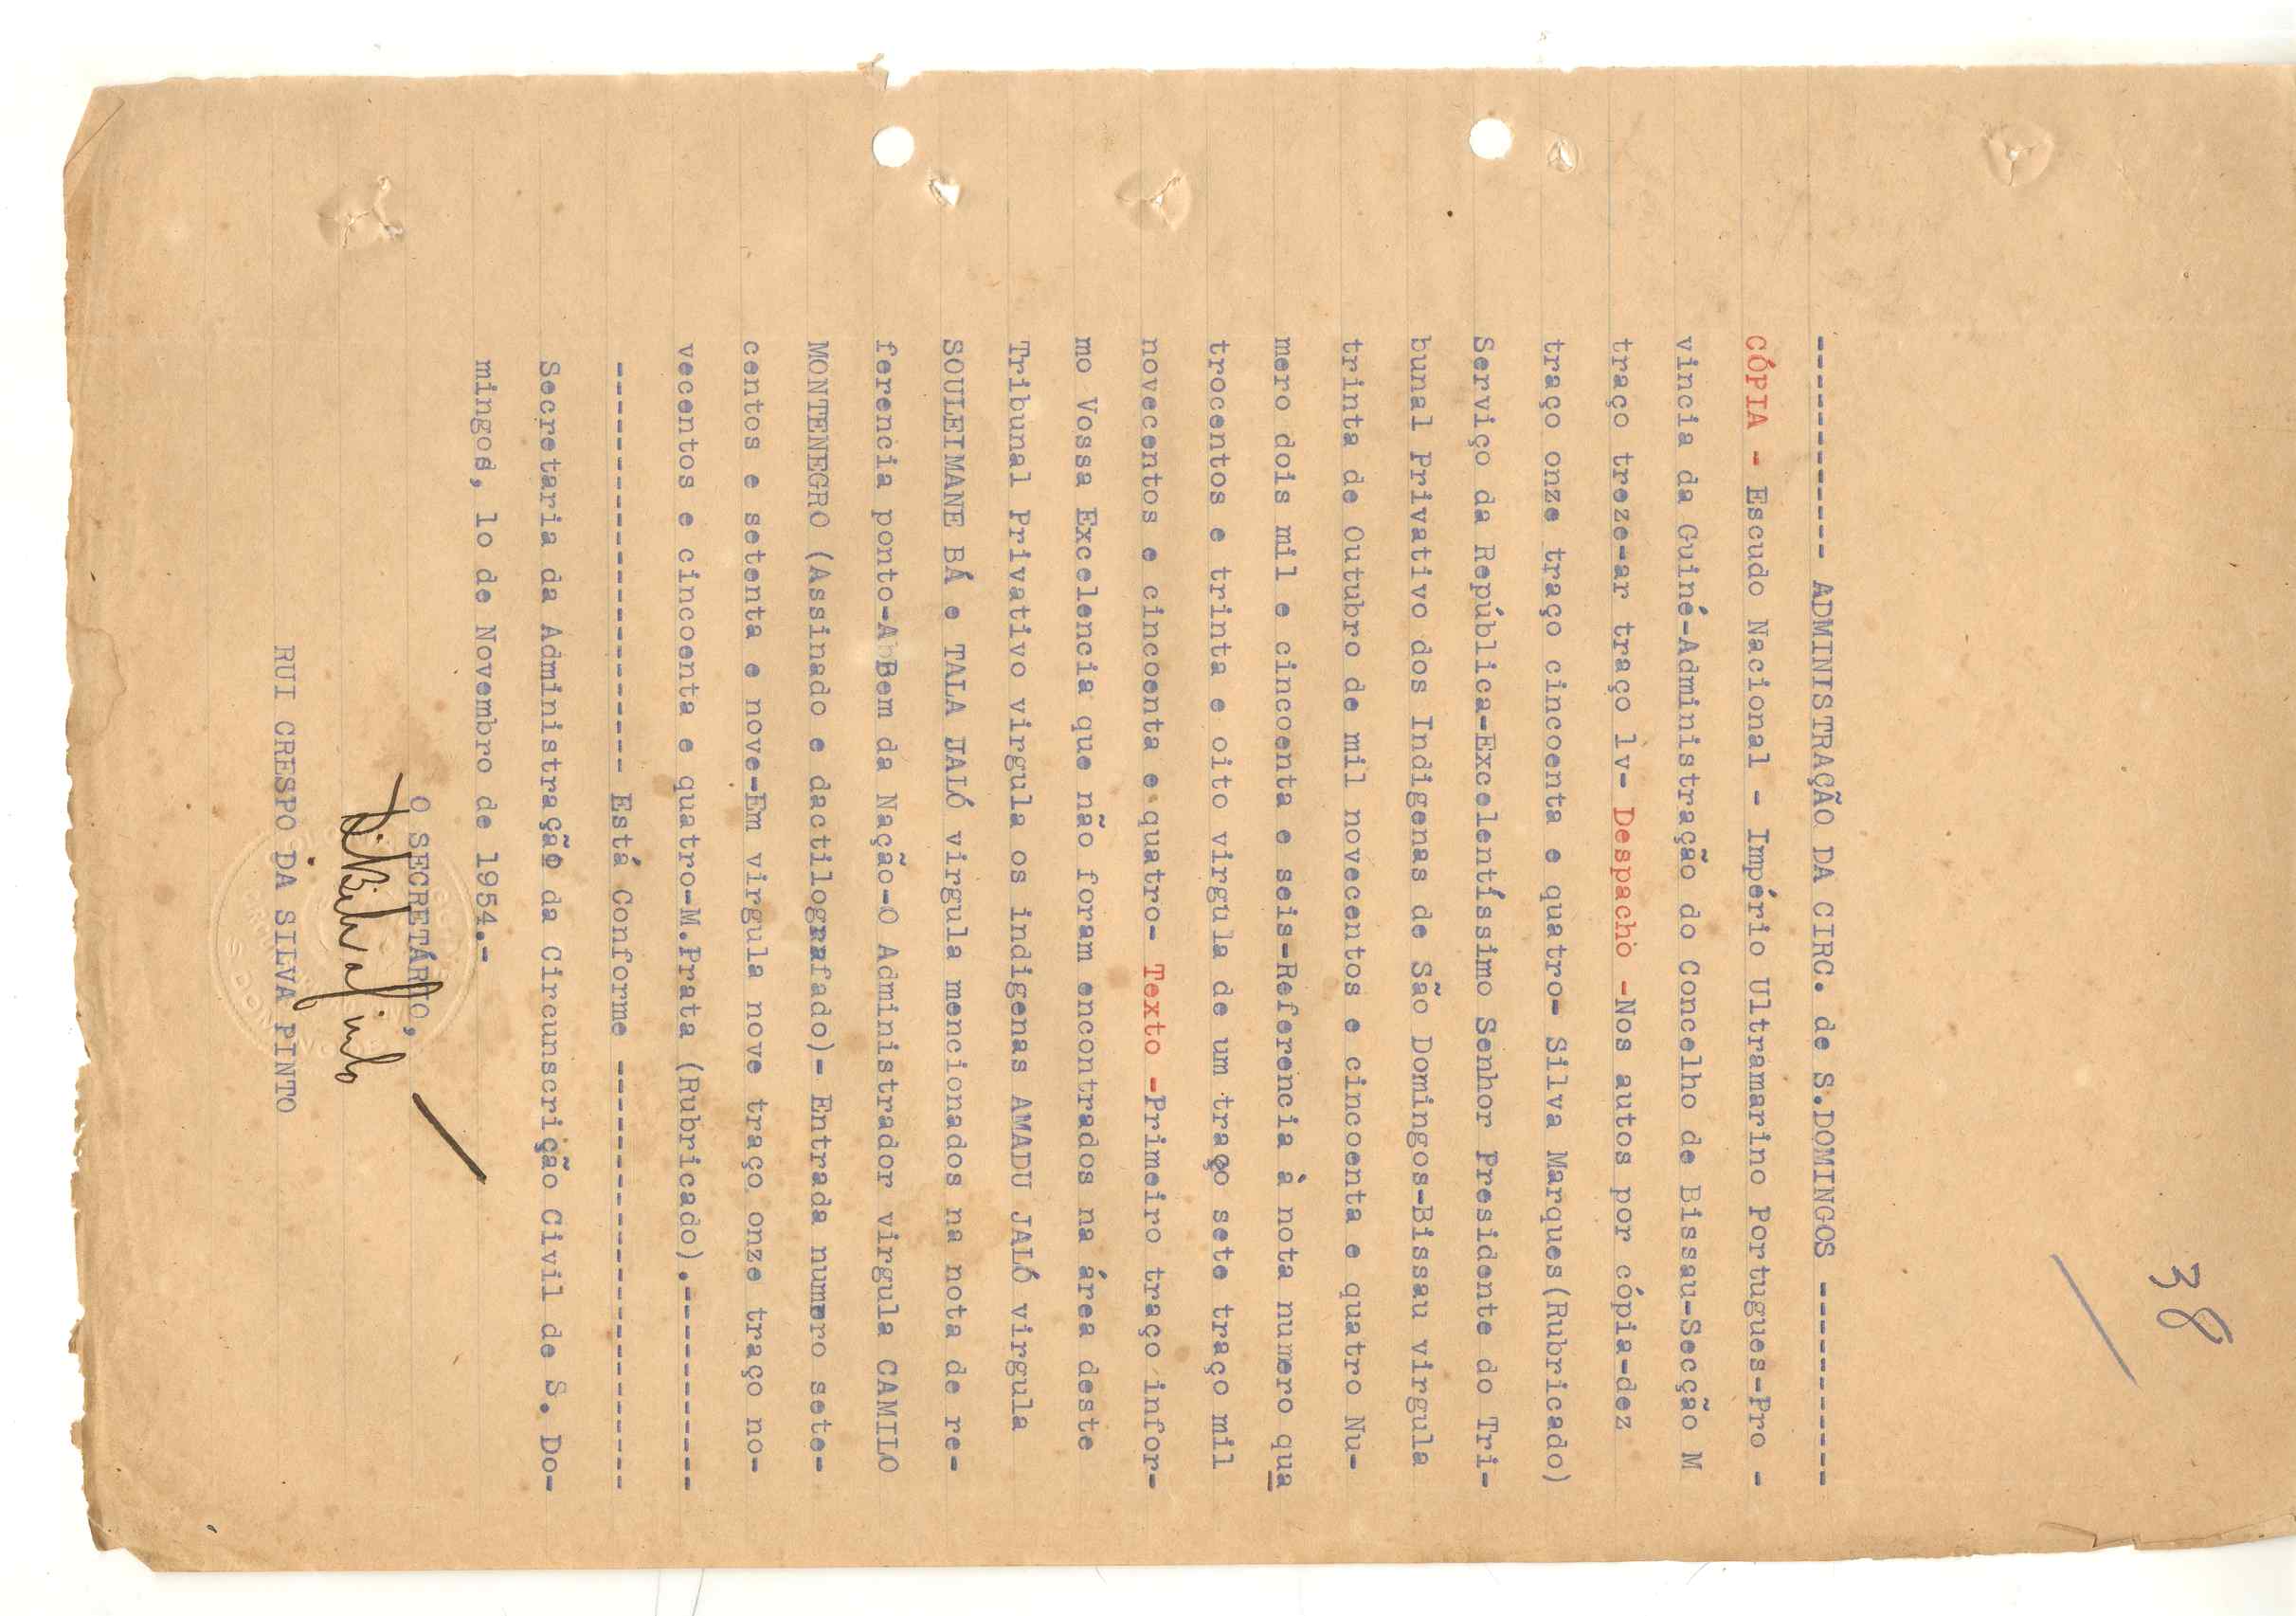 38
----------- ADMINISTRAÇÃO DA CIRC. de S.DOMINGOS -----------
CÓPIA - Escudo Nacional - Império Ultramarino Portugues-Pro -
vincia da Guiné-Administração do Concelho de Bissau-Secção M
traço treze-ar traço lv- Despacho -Nos autos por cópia-dez
traço onze traço cincoenta e quatro- Silva Marques(Rubricado)
Serviço da República-Excelentíssimo Senhor Presidente do Tri-
bunal Privativo dos Indigenas de São Domingos-Bissau virgula
trinta de Outubro de mil novecentos e cincoenta e quatro Nu-
mero dois mil e cincoenta e seis-Referencia à nota numero qua
trocentos e trinta e oito virgula de um traço sete traço mil
novecentos e cincoenta e quatro- Texto -Primeiro traço infor-
mo Vossa Excelencia que não foram encontrados na área deste
Tribunal Privativo virgula os indigenas AMADU JALÓ virgula
SOULEIMANE BÁ e TALA JALÓ virgula mencionados na nota de re-
ferencia ponto-A Bem da Nação-O Administrador virgula CAMILO
MONTENEGRO (Assinado e dactilografado)- Entrada numero sete-
centos e setenta e nove-Em virgula nove traço onze traço no-
vecentos e cincoenta e quatro-M.Prata (Rubricado).-----------
--------------------- Está Conforme ----------------------
Secretaria da Administração da Circunscrição Civil de S. Do-
mingos, lo de Novembro de 1954.-
O SECRETÁRIO,
RUI CRESPO DA SILVA PINTO